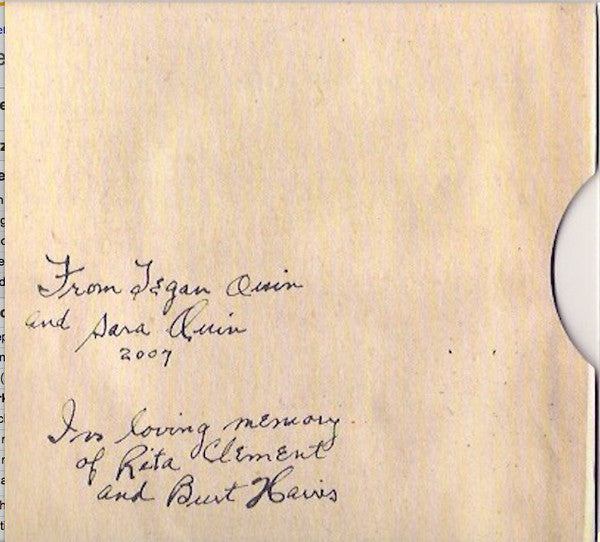 From Tegan Quin
and Sara Quin
2007
In loving memory
of Rita Clement
and Burt Harris